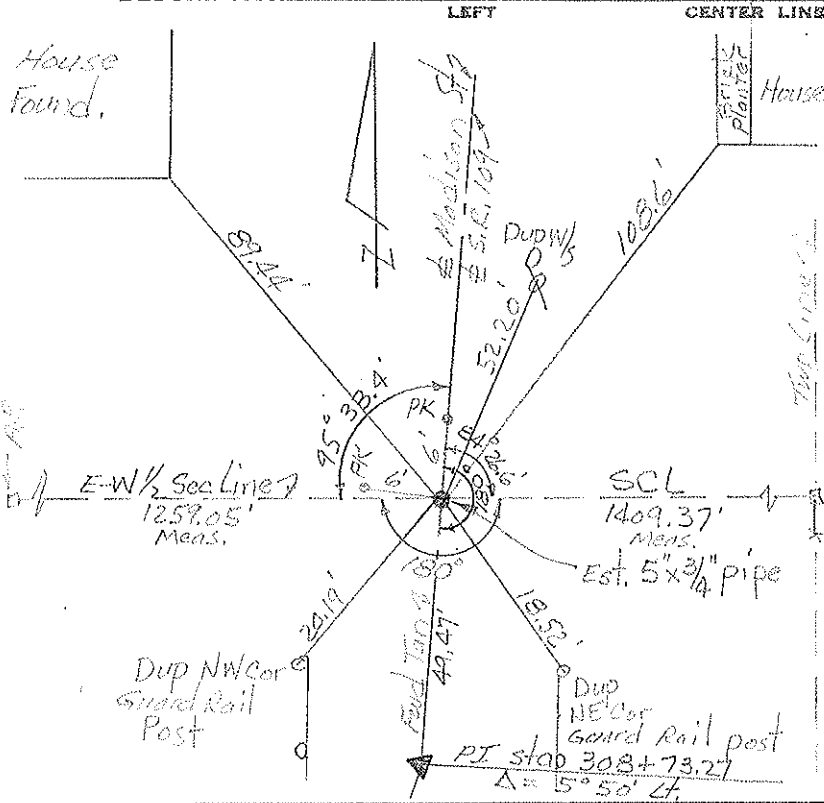 LEFT
CENTER LINE
House
Found.
Brick
Planter
House
℄ Madison St.
℄ S.R. 109
Dup W/S
89.44'
108.6'
52.20'
Twp Line
95° 33.4'
PK
6'
84° 26.6'
PK
6'
180°
E-W ½ Sec Line
1259.05'
Meas.
SCL
1409.37'
Meas.
Est. 5"x3/4" pipe
180°
20.19'
Fwd Tan
49.47'
18.52'
Dup NW Cor
Guard Rail
Post
Dup
NE Cor
Guard Rail post
P.I. sta 308+73.27
Δ = 5°50' Lt.